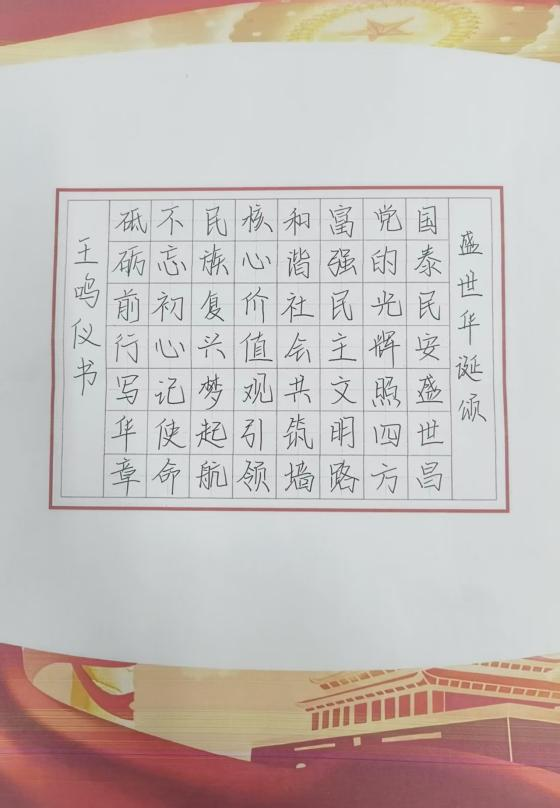 盛世华诞颂
国泰民安盛世昌
党的光辉照四方
富强民主文明路
和谐社会共筑墙
核心价值观引领
民族复兴梦起航
不忘初心记使命
砥砺前行写华章
王鸣仪书